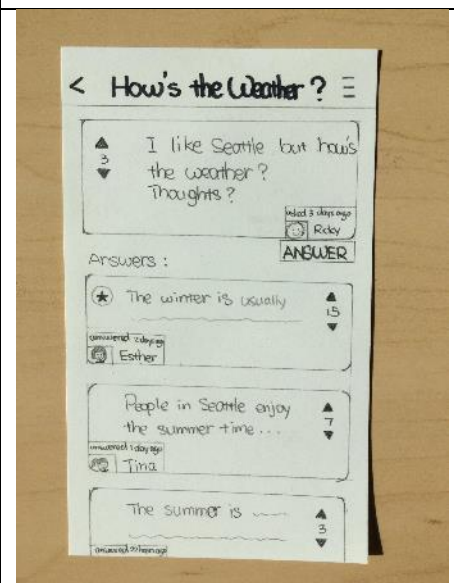 < How's the Weather?
3
I like Seattle but how's
the weather?
Thoughts?
asked 3 days ago
Ricky
ANSWER
Answers :
The winter is usually
15
answered 2 days ago
Esther
People in Seattle enjoy
the summer time ...
7
answered 1 day ago
Tina
The summer is
3
answered